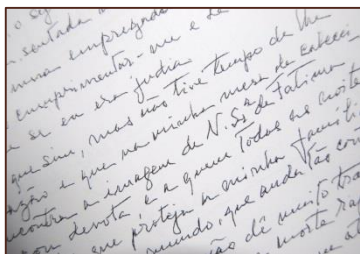 o sy
m sentada a
mma empregada
e cumprimentar-me e se
se eu era judia
que sim, mas não tive tempo de lhe
ação e que na minha mesa de cabecei-
encontra a imagem de N. Sª de Fatima
sou devota, e a quem todas as noites
que proteja a minha família
mundo, que anda tão con
ão dê muito tra
morte ra